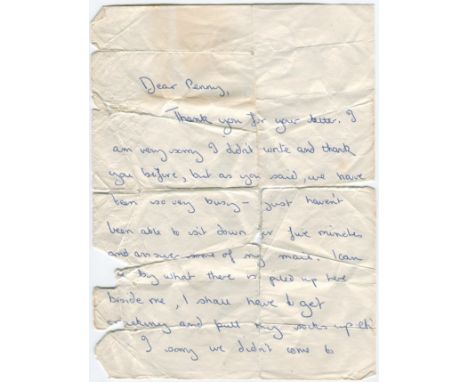 Dear Penny,
Thank you for your letter. I
am very sorry I didn't write and thank
you before, but as you said, we have
been so very busy - just haven't
been able to sit down for five minutes
and answer some of my mail. I can
by what there is piled up here
beside me, I shall have to get
and pull my socks up eh
I sorry we didn't come to